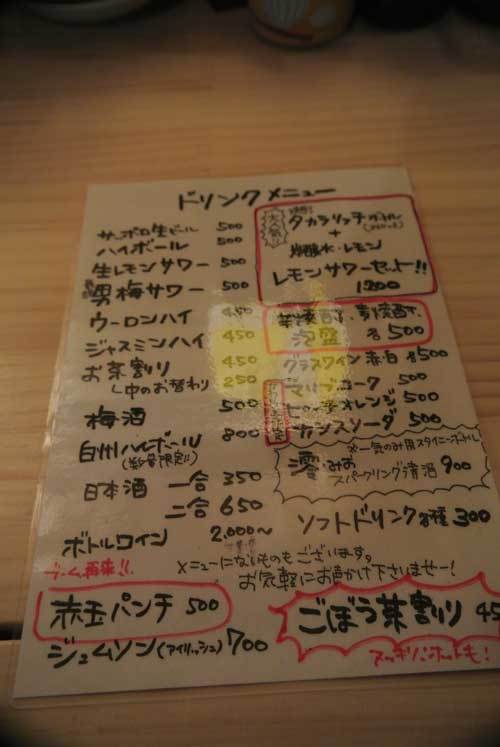 ドリンクメニュー
サッポロ生ビール 500
ハイボール 500
生レモンサワー 500
男梅サワー 500
ウーロンハイ 450
ジャスミンハイ 450
お茶割り 450
中のお替わり 250
梅酒 500
白州ハイボール 800
(数量限定!!)
日本酒 一合 350
二合 650
ボトルワイン 2,000〜
大人気!!
タカラリッチボトル
+
炭酸水・レモン
レモンサワーセット!!
1200
芋焼酎、麦焼酎、
泡盛 各500
グラスワイン 赤・白 各500
コーク 500
オレンジ 500
カシスソーダ 500
※一気のみ用スタイニーボトル
澪・みお
スパークリング清酒 900
ソフトドリンク各種 300
メニューにないものもございます。
お気軽にお声かけ下さいませー!
ブーム再来!!
赤玉パンチ 500
ジェムソン(アイリッシュ) 700
ごぼう茶割り
スッキリ!ホットも!